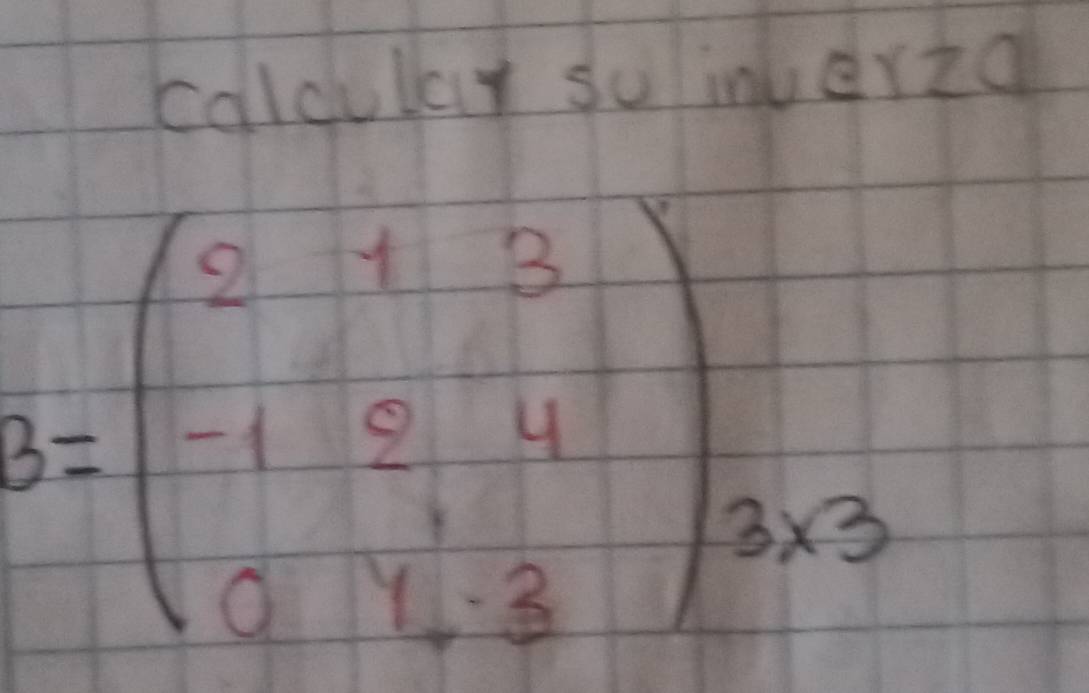 calcular su inverza
2 1 3
B = -1 2 4
3x3
0 1 -3